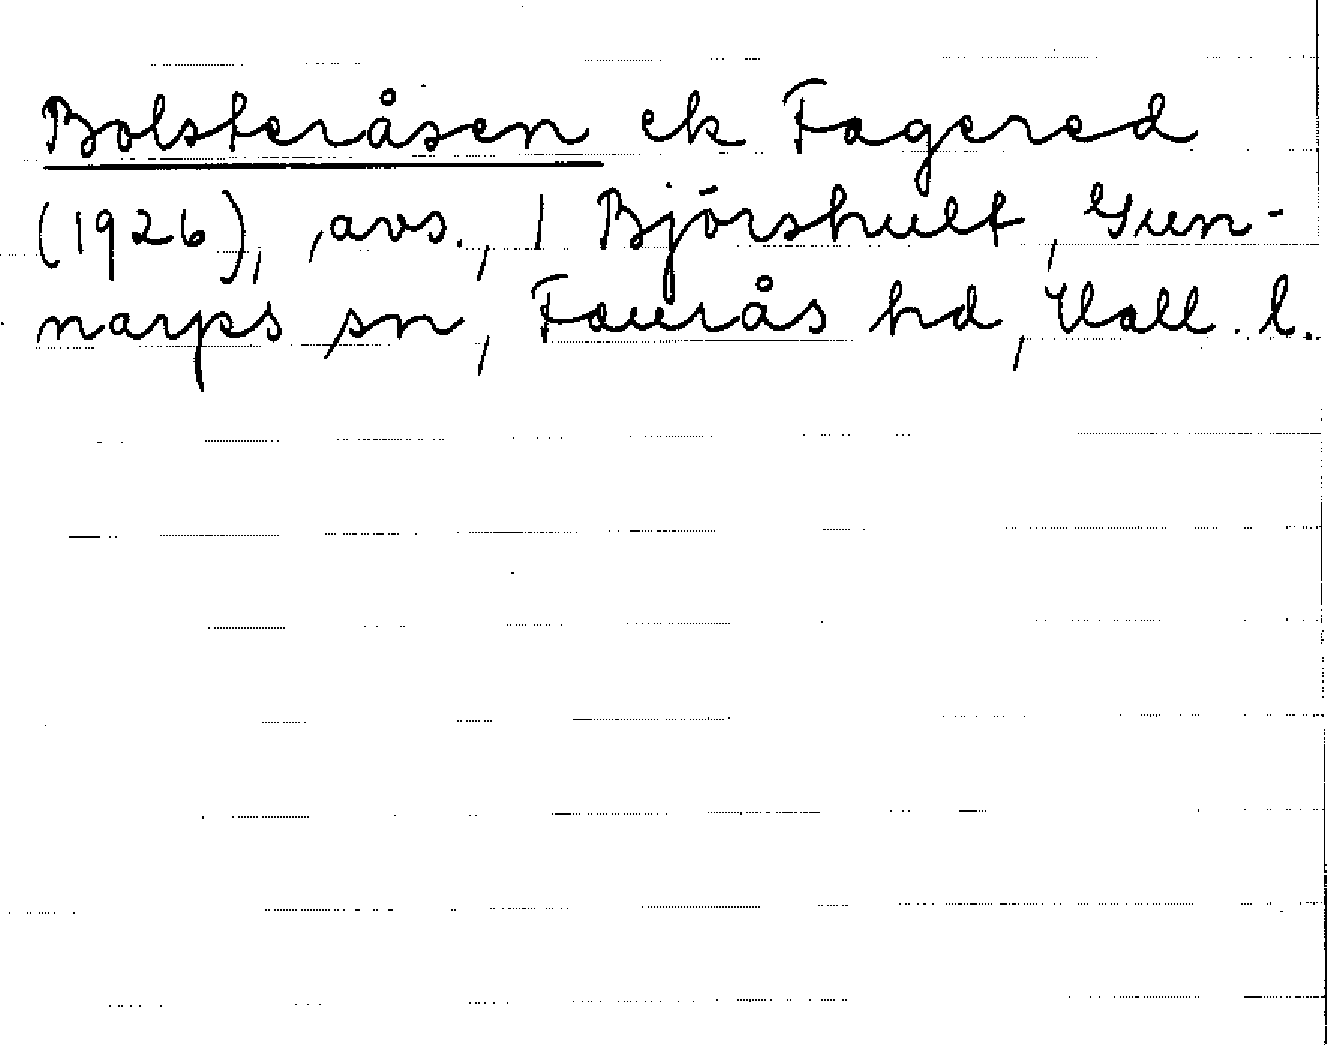 Bolsteråsen ek Fagered
(1926), avs., 1 Björshult, Gun-
narps sn, Faurås hd, Hall. l.